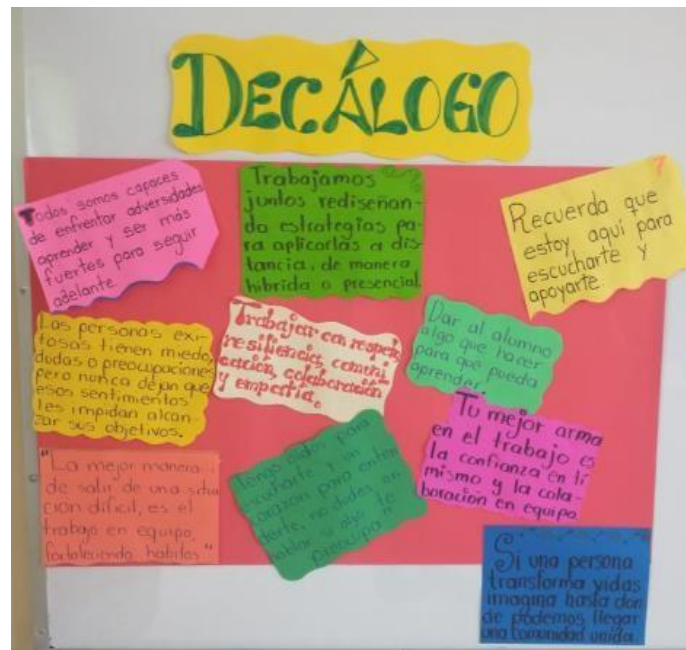 DECÁLOGO
Todos somos capaces
de enfrentar adversidades
aprender y ser más
fuertes para seguir
adelante.
Trabajamos
juntos rediseñan-
do estrategias pa-
ra aplicarlas a dis-
tancia, de manera
híbrida o presencial.
Recuerda que
estoy aquí para
escucharte y
apoyarte.
Las personas exi-
tosas tienen miedo,
dudas o preocupaciones
pero nunca dejan que
esos sentimientos
les impidan alcan-
zar sus objetivos.
Trabajar con respeto,
resiliencia, comuni-
cación, colaboración
y empatía.
Dar al alumno
algo que hacer
para que pueda
aprender.
Tu mejor arma
en el trabajo es
la confianza en ti
mismo y la cola-
boración en equipo.
"La mejor manera
de salir de una situa
ción difícil, es el
trabajo en equipo,
fortaleciendo hábitos"
Tengo oídos para
escucharte y un
corazón para enten
derte, no dudes en
hablar si algo te
preocupa"
Si una persona
transforma vidas
imagina hasta don
de podemos llegar
una comunidad unida.